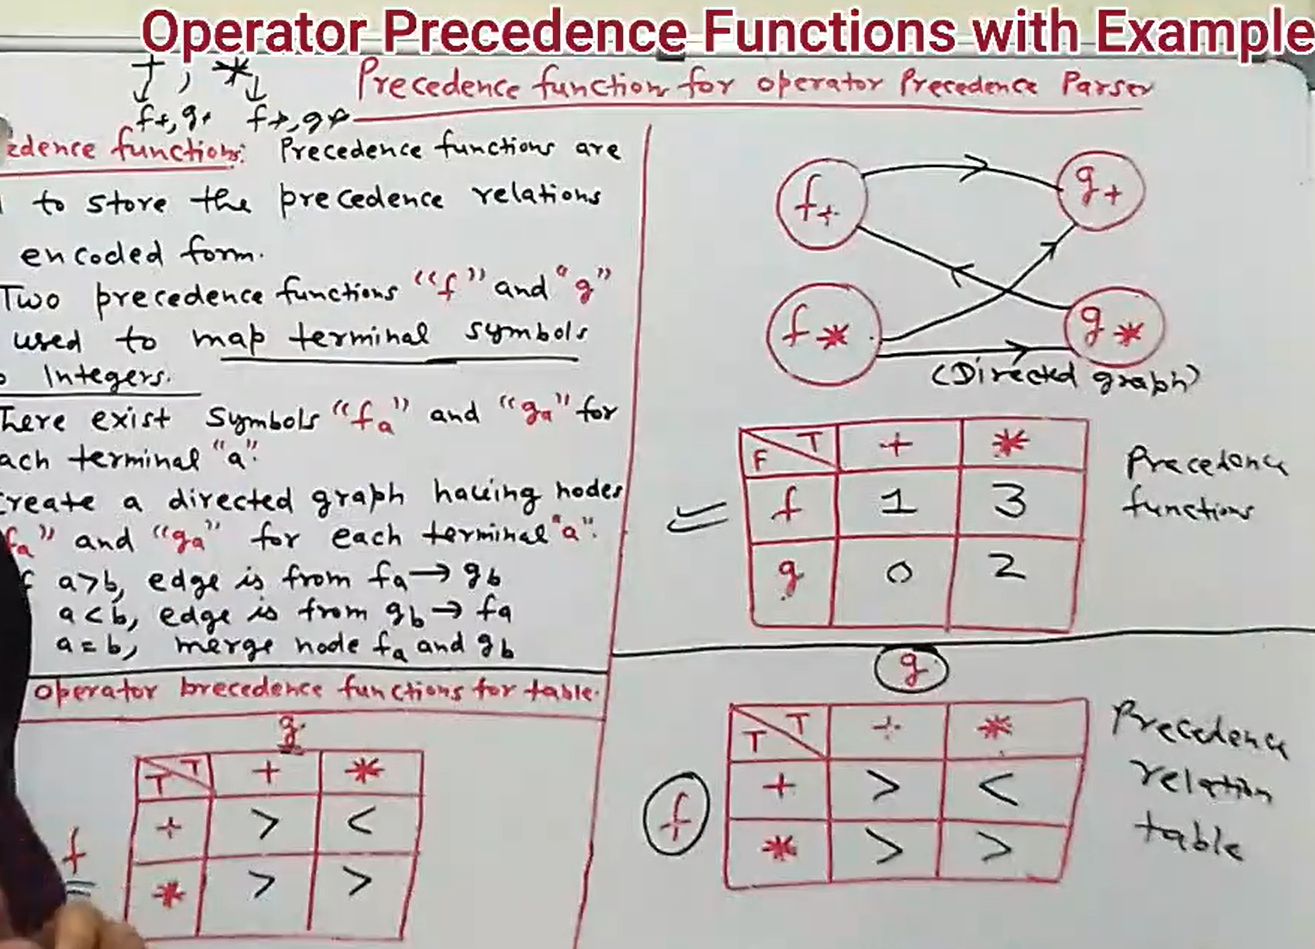 Operator Precedence Functions with Example
+, *
f+, g+ f*, g*
Precedence function for operator Precedence Parser
edence functions: Precedence functions are
to store the precedence relations
encoded form.
Two precedence functions "f" and "g"
used to map terminal symbols
Integers.
There exist symbols "fa" and "ga" for
ach terminal "a".
Create a directed graph having nodes
fa" and "ga" for each terminal "a".
a>b, edge is from fa → gb
a<b, edge is from gb → fa
a=b, merge node fa and gb
operator precedence functions for table.
g
T T + *
+ > <
f
* > >
f+ g+
f* g*
(Directed graph)
F T + *
f 1 3
g 0 2
Precedence
functions
g
T T + *
f
+ > <
* > >
Precedence
relation
table